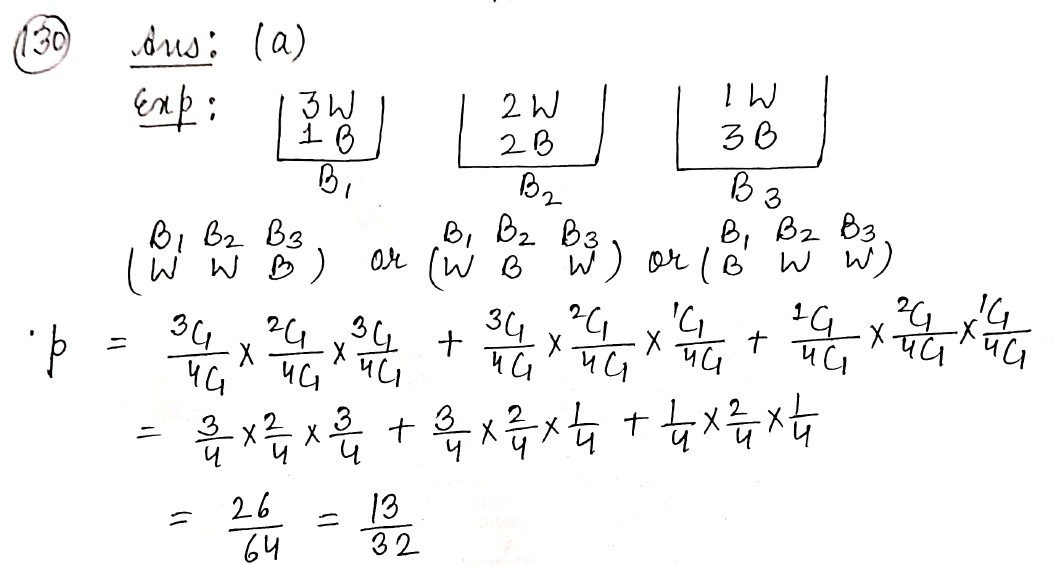 130 Ans: (a)
Exp: 3W 2W 1W
1B 2B 3B
B₁ B₂ B₃
B₁ B₂ B₃ B₁ B₂ B₃ B₁ B₂ B₃
(W W B) or (W B W) or (B W W)
p = ³C₁/⁴C₁ × ²C₁/⁴C₁ × ³C₁/⁴C₁ + ³C₁/⁴C₁ × ²C₁/⁴C₁ × ¹C₁/⁴C₁ + ¹C₁/⁴C₁ × ²C₁/⁴C₁ × ¹C₁/⁴C₁
= 3/4 × 2/4 × 3/4 + 3/4 × 2/4 × 1/4 + 1/4 × 2/4 × 1/4
= 26/64 = 13/32